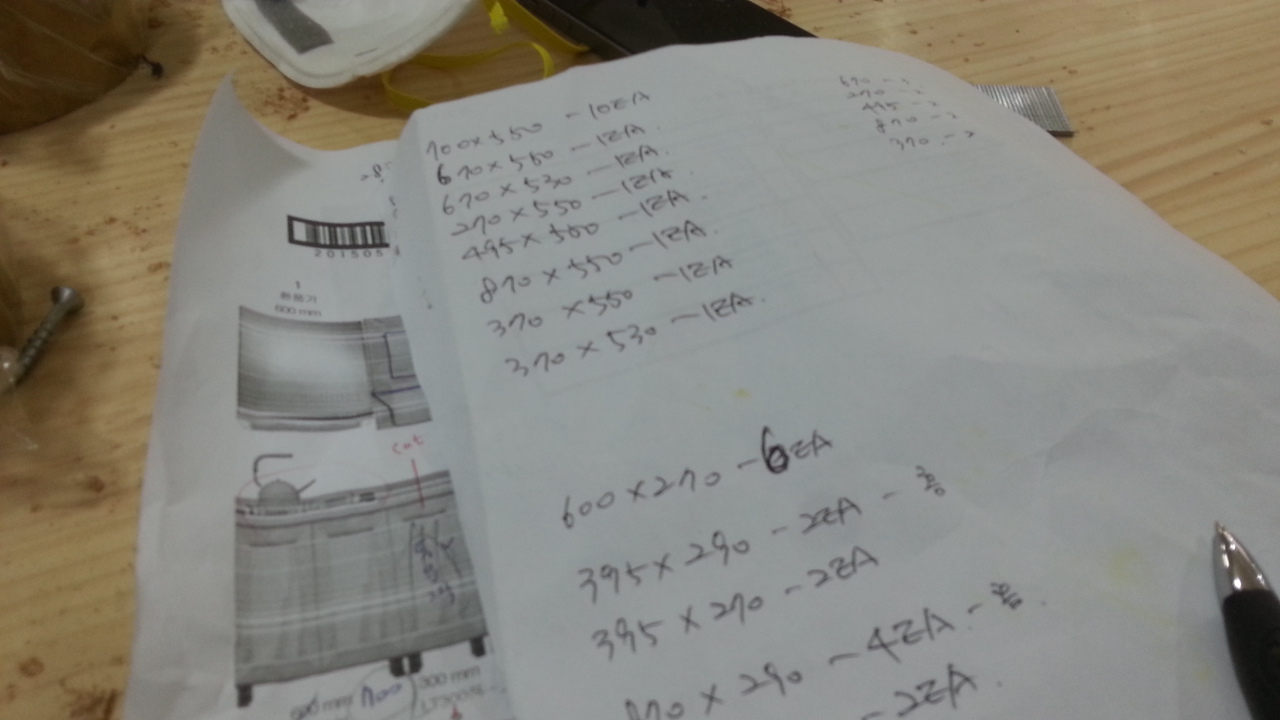 700×550 -10EA
670×550 -1EA.
670×530 -1EA.
270×550 -1EA.
495×550 -1EA.
870×550 -1EA.
370×550 -1EA
370×530 -1EA.
670 -
270 -
495 -2
870 -2
370. -2
600×270 -6EA
395×290 -2EA -홈
395×270 -2EA
×290 -4EA -홈.
-2EA.
201505
1
600 mm
cut
300 mm